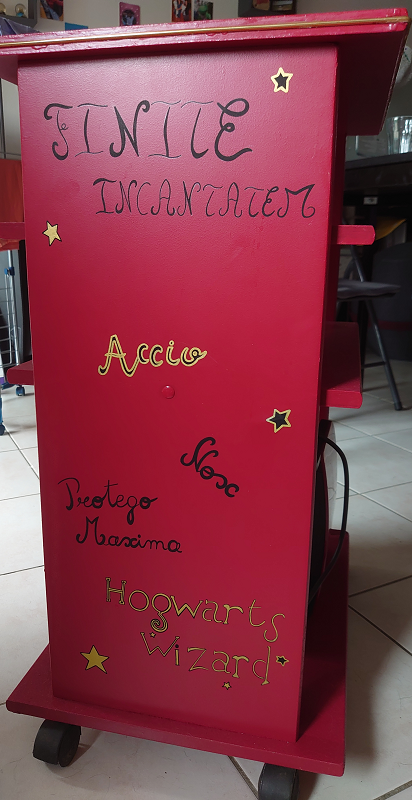 FINITE
INCANTATEM
Accio
Nox
Protego
Maxima
Hogwarts
Wizard